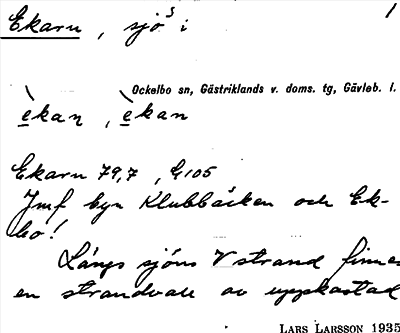 Ekarn, sjö s i 1
Ockelbo sn, Gästriklands v. doms. tg, Gävleb. l.
èkaṇ, èkan
Ekarn 79,7, G105
Jmf byn Klubbäcken och Ek-
bo!
Längs sjöns V strand finnes
en strandvall av uppkastad
LARS LARSSON 1935